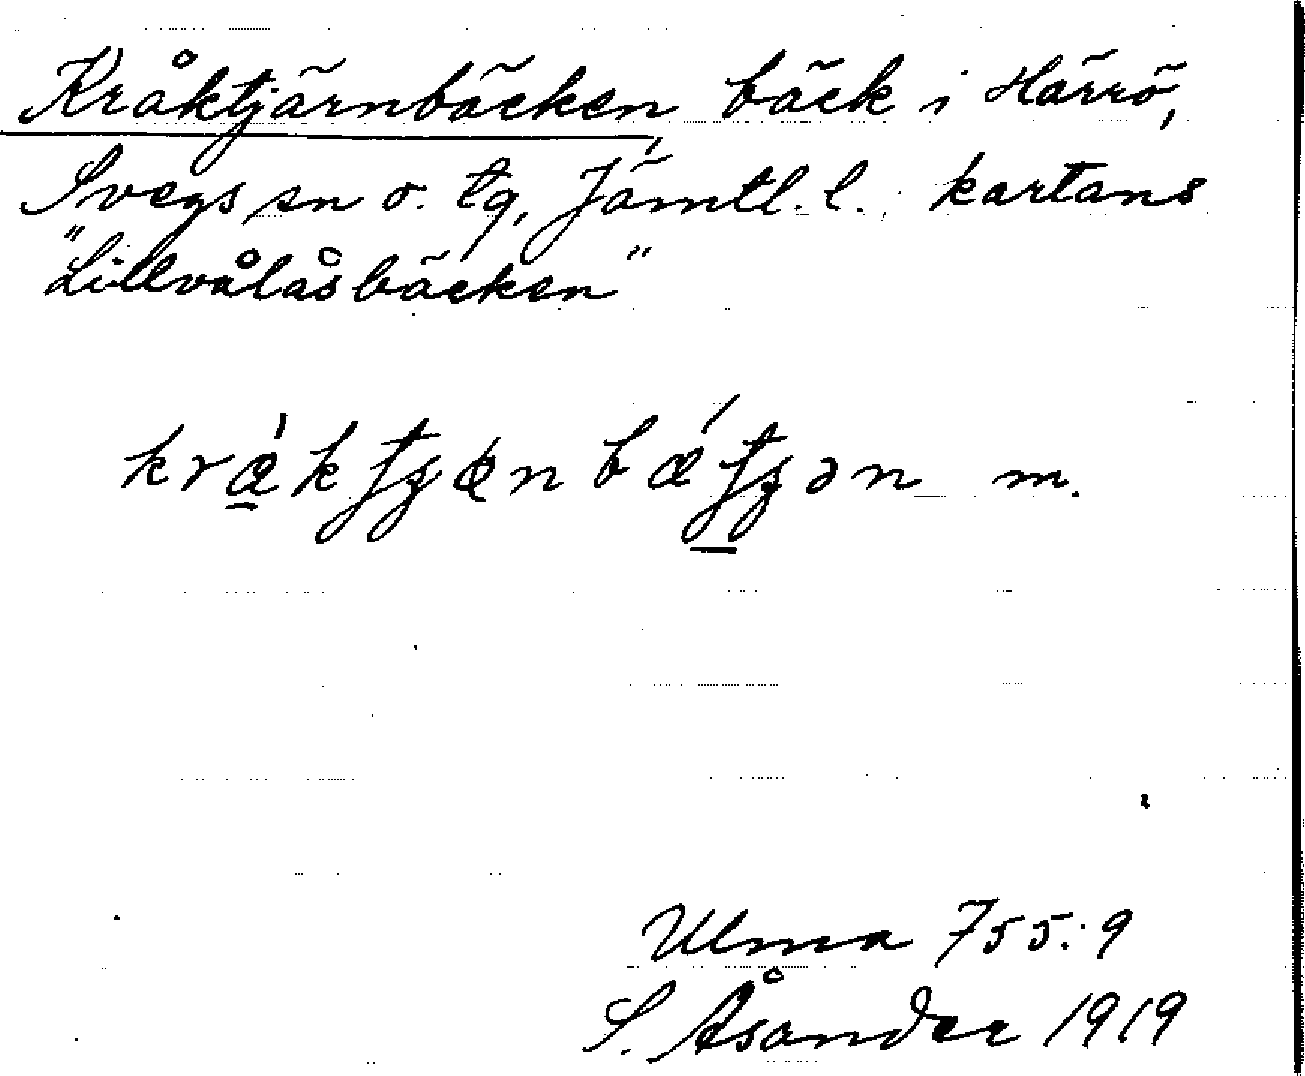 Kråktjärnbäcken, bäck i Härrö,
Svegs sn o. tg, Jämtl. l., kartans
"Lillvålåsbäcken"
m.
Ulma 755:9
S. Åsander 1919